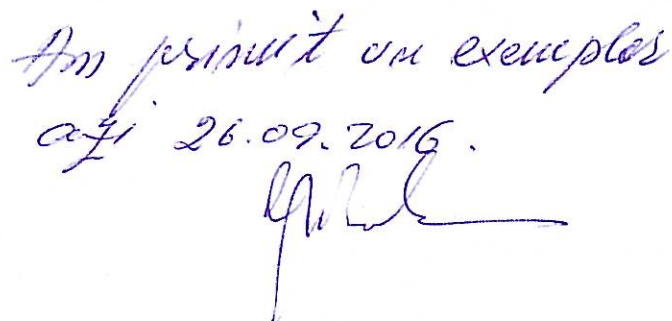 Am primit un exemplar
azi 26.09.2016.